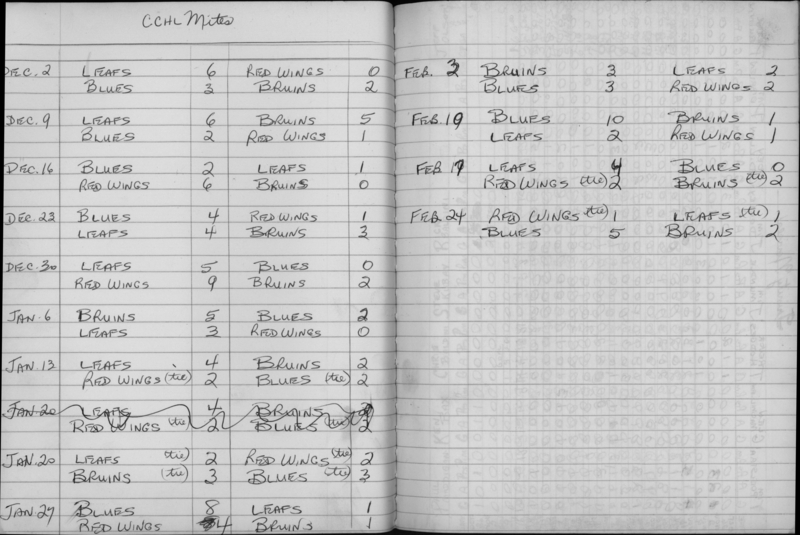 CCHL Mites
DEC. 2 LEAFS 6 RED WINGS 0
BLUES 3 BRUINS 2
DEC. 9 LEAFS 6 BRUINS 5
BLUES 2 RED WINGS 1
DEC. 16 BLUES 2 LEAFS 1
RED WINGS 6 BRUINS 0
DEC. 23 BLUES 4 RED WINGS 1
LEAFS 4 BRUINS 3
DEC. 30 LEAFS 5 BLUES 0
RED WINGS 9 BRUINS 2
JAN. 6 BRUINS 5 BLUES 2
LEAFS 3 RED WINGS 0
JAN. 13 LEAFS 4 BRUINS 2
RED WINGS (tie) 2 BLUES (tie) 2
JAN. 20 LEAFS 4 BRUINS 2
RED WINGS (tie) 2 BLUES (tie) 2
JAN. 20 LEAFS (tie) 2 RED WINGS (tie) 2
BRUINS (tie) 3 BLUES (tie) 3
JAN. 27 BLUES 8 LEAFS 1
RED WINGS 4 BRUINS 1
FEB. 3 BRUINS 3 LEAFS 2
BLUES 3 RED WINGS 2
FEB. 10 BLUES 10 BRUINS 1
LEAFS 2 RED WINGS 1
FEB. 17 LEAFS 4 BLUES 0
RED WINGS (tie) 2 BRUINS (tie) 2
FEB. 24 RED WINGS (tie) 1 LEAFS (tie) 1
BLUES 5 BRUINS 2